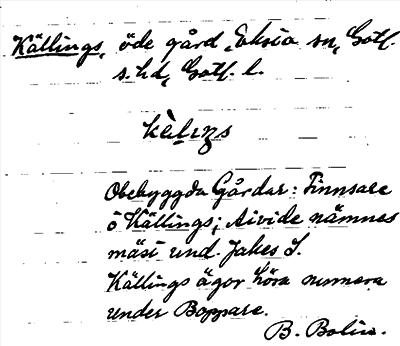 Källings, öde gård, Eksta sn, Gotl.
s. hd, Gotl. l.
Obebyggda Gårdar: Finnsare
o Källings; Aivide nämnes
mäst und. Jakes S.
Källings ägor höra numera
under Boppare.
B. Bolin.